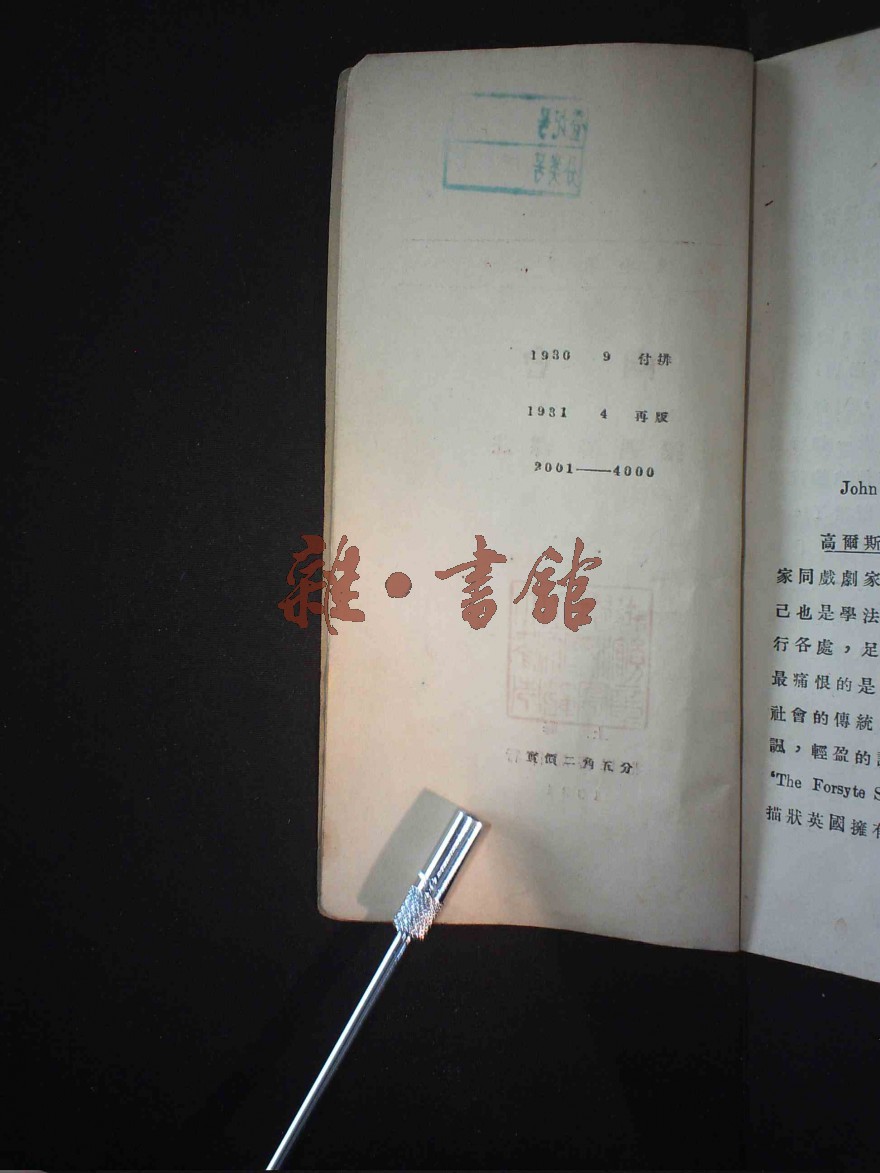 登記号
分类号
1930 9 付排
1931 4 再版
2001——4000
雜·書館
實價二角五分
John
高爾斯
家同戲劇家
己也是學法
行各處，足
最痛恨的是
社會的傳統
諷，輕盈的
‘The Forsyte S
描狀英國擁有